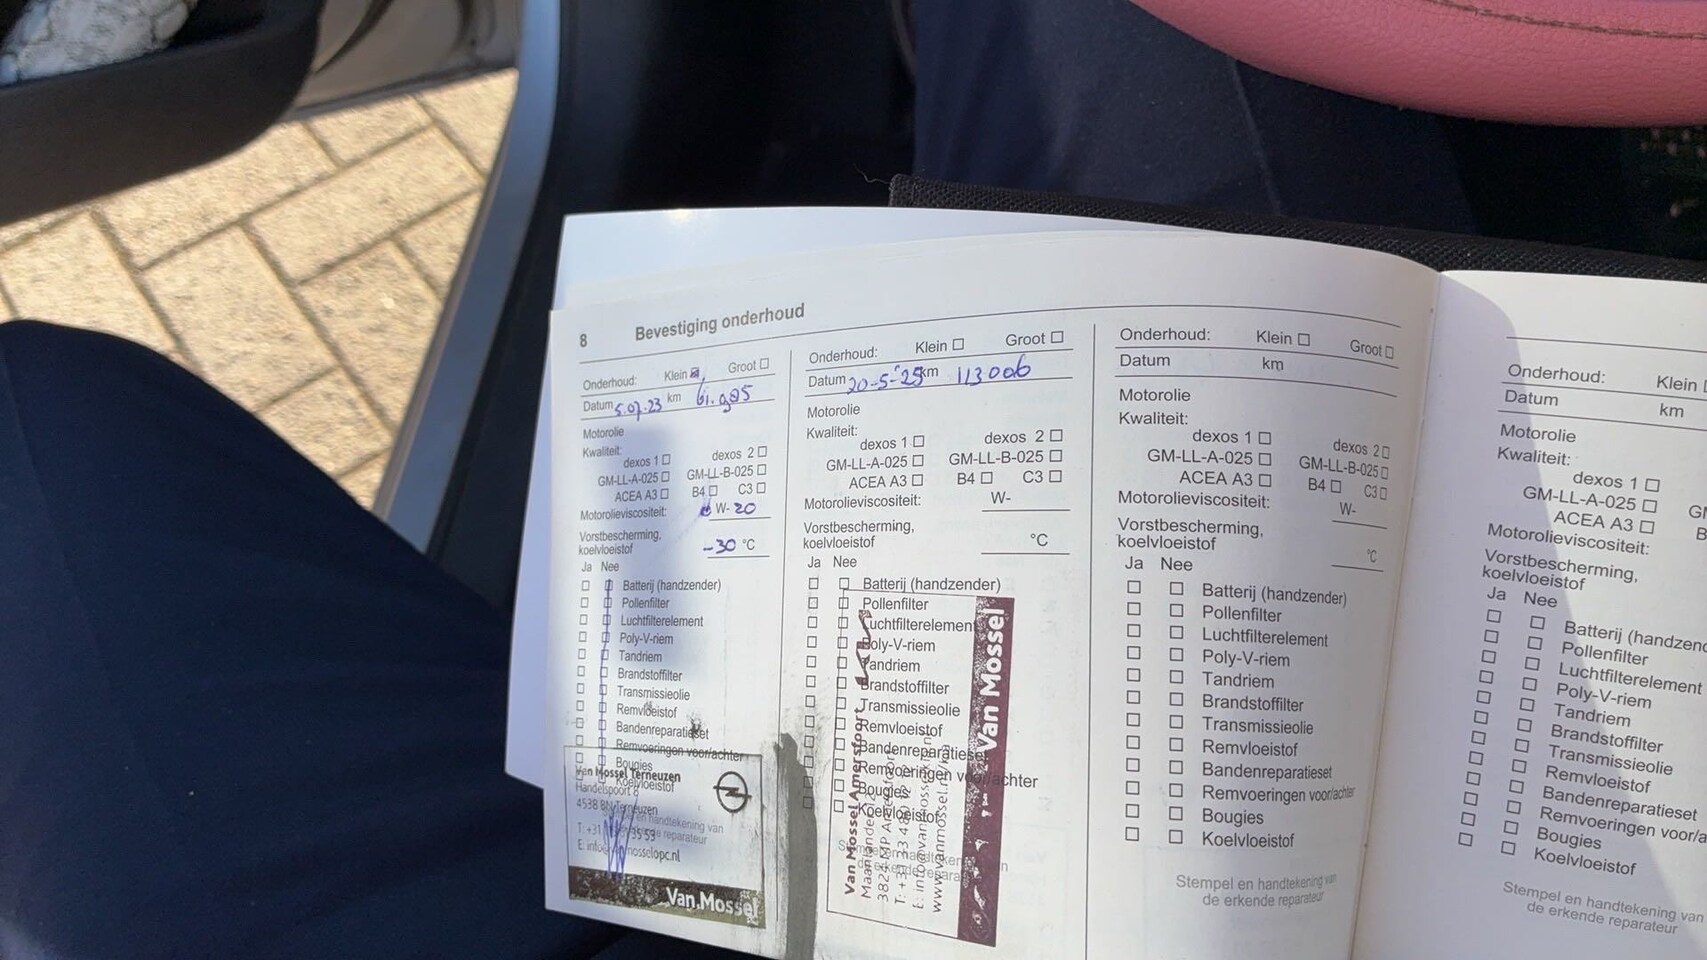 8 Bevestiging onderhoud
Onderhoud: Klein Groot
Datum 5.07.23 km 61.985
Motorolie
Kwaliteit:
dexos 1 dexos 2
GM-LL-A-025 GM-LL-B-025
ACEA A3 B4 C3
Motorolieviscositeit: W-20
Vorstbescherming,
koelvloeistof -30 °C
Ja Nee
Batterij (handzender)
Pollenfilter
Luchtfilterelement
Poly-V-riem
Tandriem
Brandstoffilter
Transmissieolie
Remvloeistof
Bandenreparatieset
Remvoeringen voor/achter
Bougies
Koelvloeistof
Van Mossel Terneuzen
Handelspoort 8
4538 BN Terneuzen
Stempel en handtekening van
de erkende reparateur
T: +31
E: info@vanmosselopc.nl
Van Mossel
Onderhoud: Klein Groot
Datum 20-5-'25 km 113006
Motorolie
Kwaliteit:
dexos 1 dexos 2
GM-LL-A-025 GM-LL-B-025
ACEA A3 B4 C3
Motorolieviscositeit: W-
Vorstbescherming,
koelvloeistof °C
Ja Nee
Batterij (handzender)
Pollenfilter
Luchtfilterelement
Poly-V-riem
Tandriem
Brandstoffilter
Transmissieolie
Remvloeistof
Bandenreparatieset
Remvoeringen voor/achter
Bougies
Koelvloeistof
Stempel en handtekening van
de erkende reparateur
Van Mossel Amersfoort
3824 MP Amersfoort
T: +31 33
E: info@vanmossel
www.vanmossel.nl
Van Mossel
Onderhoud: Klein Groot
Datum km
Motorolie
Kwaliteit:
dexos 1 dexos 2
GM-LL-A-025 GM-LL-B-025
ACEA A3 B4 C3
Motorolieviscositeit: W-
Vorstbescherming,
koelvloeistof °C
Ja Nee
Batterij (handzender)
Pollenfilter
Luchtfilterelement
Poly-V-riem
Tandriem
Brandstoffilter
Transmissieolie
Remvloeistof
Bandenreparatieset
Remvoeringen voor/achter
Bougies
Koelvloeistof
Stempel en handtekening van
de erkende reparateur
Onderhoud: Klein
Datum km
Motorolie
Kwaliteit:
dexos 1
GM-LL-A-025 GM
ACEA A3 B
Motorolieviscositeit:
Vorstbescherming,
koelvloeistof
Ja Nee
Batterij (handzend
Pollenfilter
Luchtfilterelement
Poly-V-riem
Tandriem
Brandstoffilter
Transmissieolie
Remvloeistof
Bandenreparatieset
Remvoeringen voor/a
Bougies
Koelvloeistof
Stempel en handtekening van
de erkende reparateur